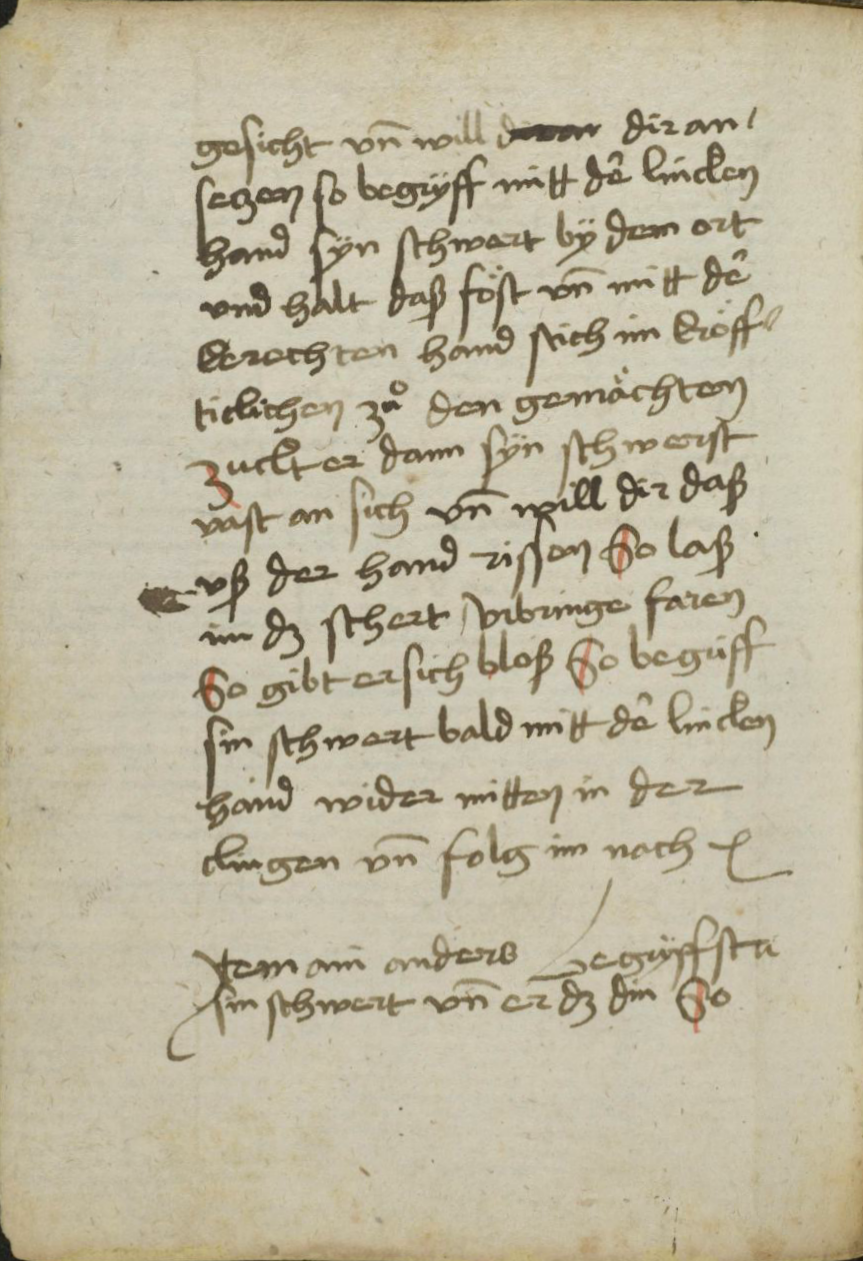 gesicht vn̄ will dir an
seczen so begryff mitt dē lincken
hand syn schwert bÿ dem ort
vnd halt daß föst vn̄ mitt dē
kerechten hand stich im kröff
ticlichen zuͦ den gemächten
zuckt er dann syn schwerst
vast an sich vn̄ will dir daß
vß der hand rissen So laß
im dz schert vrbringe faren
So gibt er sich bloß So begriff
sin schwert bald mitt dē lincken
hand wider mitten in der
clingen vn̄ folg im nach
Item ain anders Begryffstu
sin schwert vn̄ er dz din So